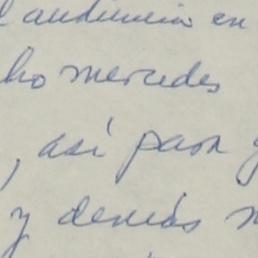 audiencia en
ho mercedes
, así para
y demás